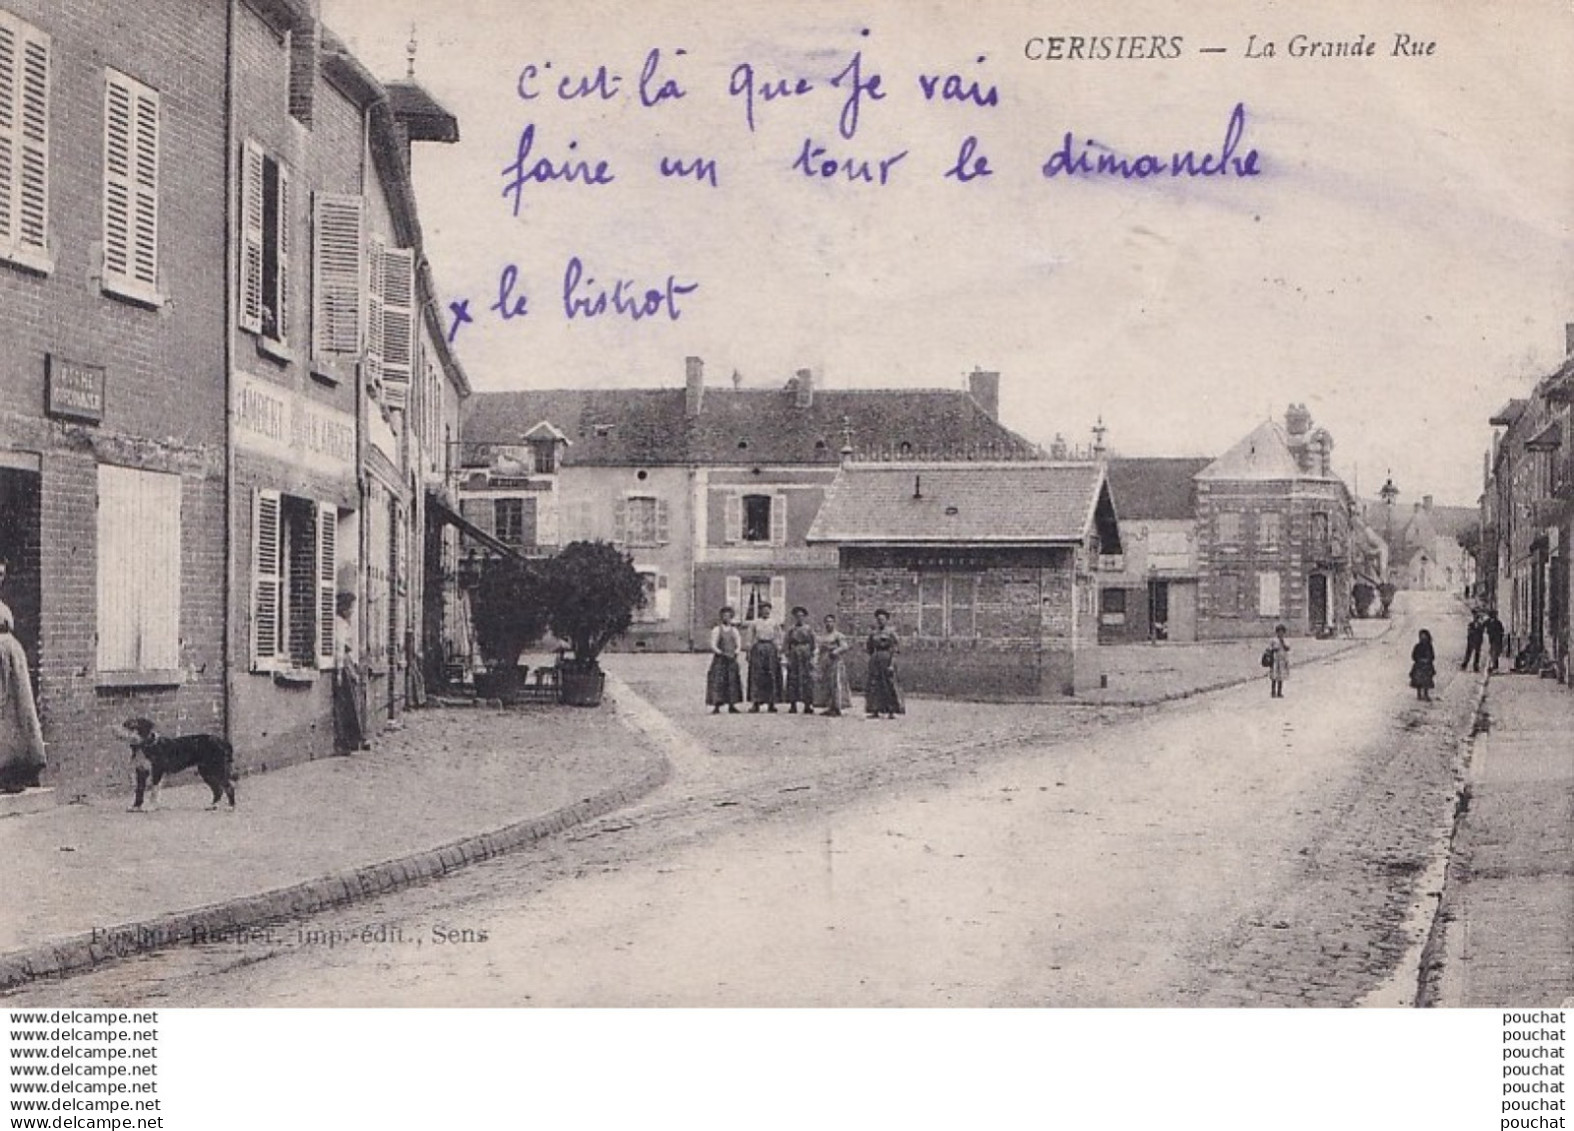 CERISIERS — La Grande Rue
c'est là que je vais
faire un tour le dimanche
x le bistrot
imp.-édit., Sens
www.delcampe.net
www.delcampe.net
www.delcampe.net
www.delcampe.net
www.delcampe.net
www.delcampe.net
www.delcampe.net
pouchat
pouchat
pouchat
pouchat
pouchat
pouchat
pouchat